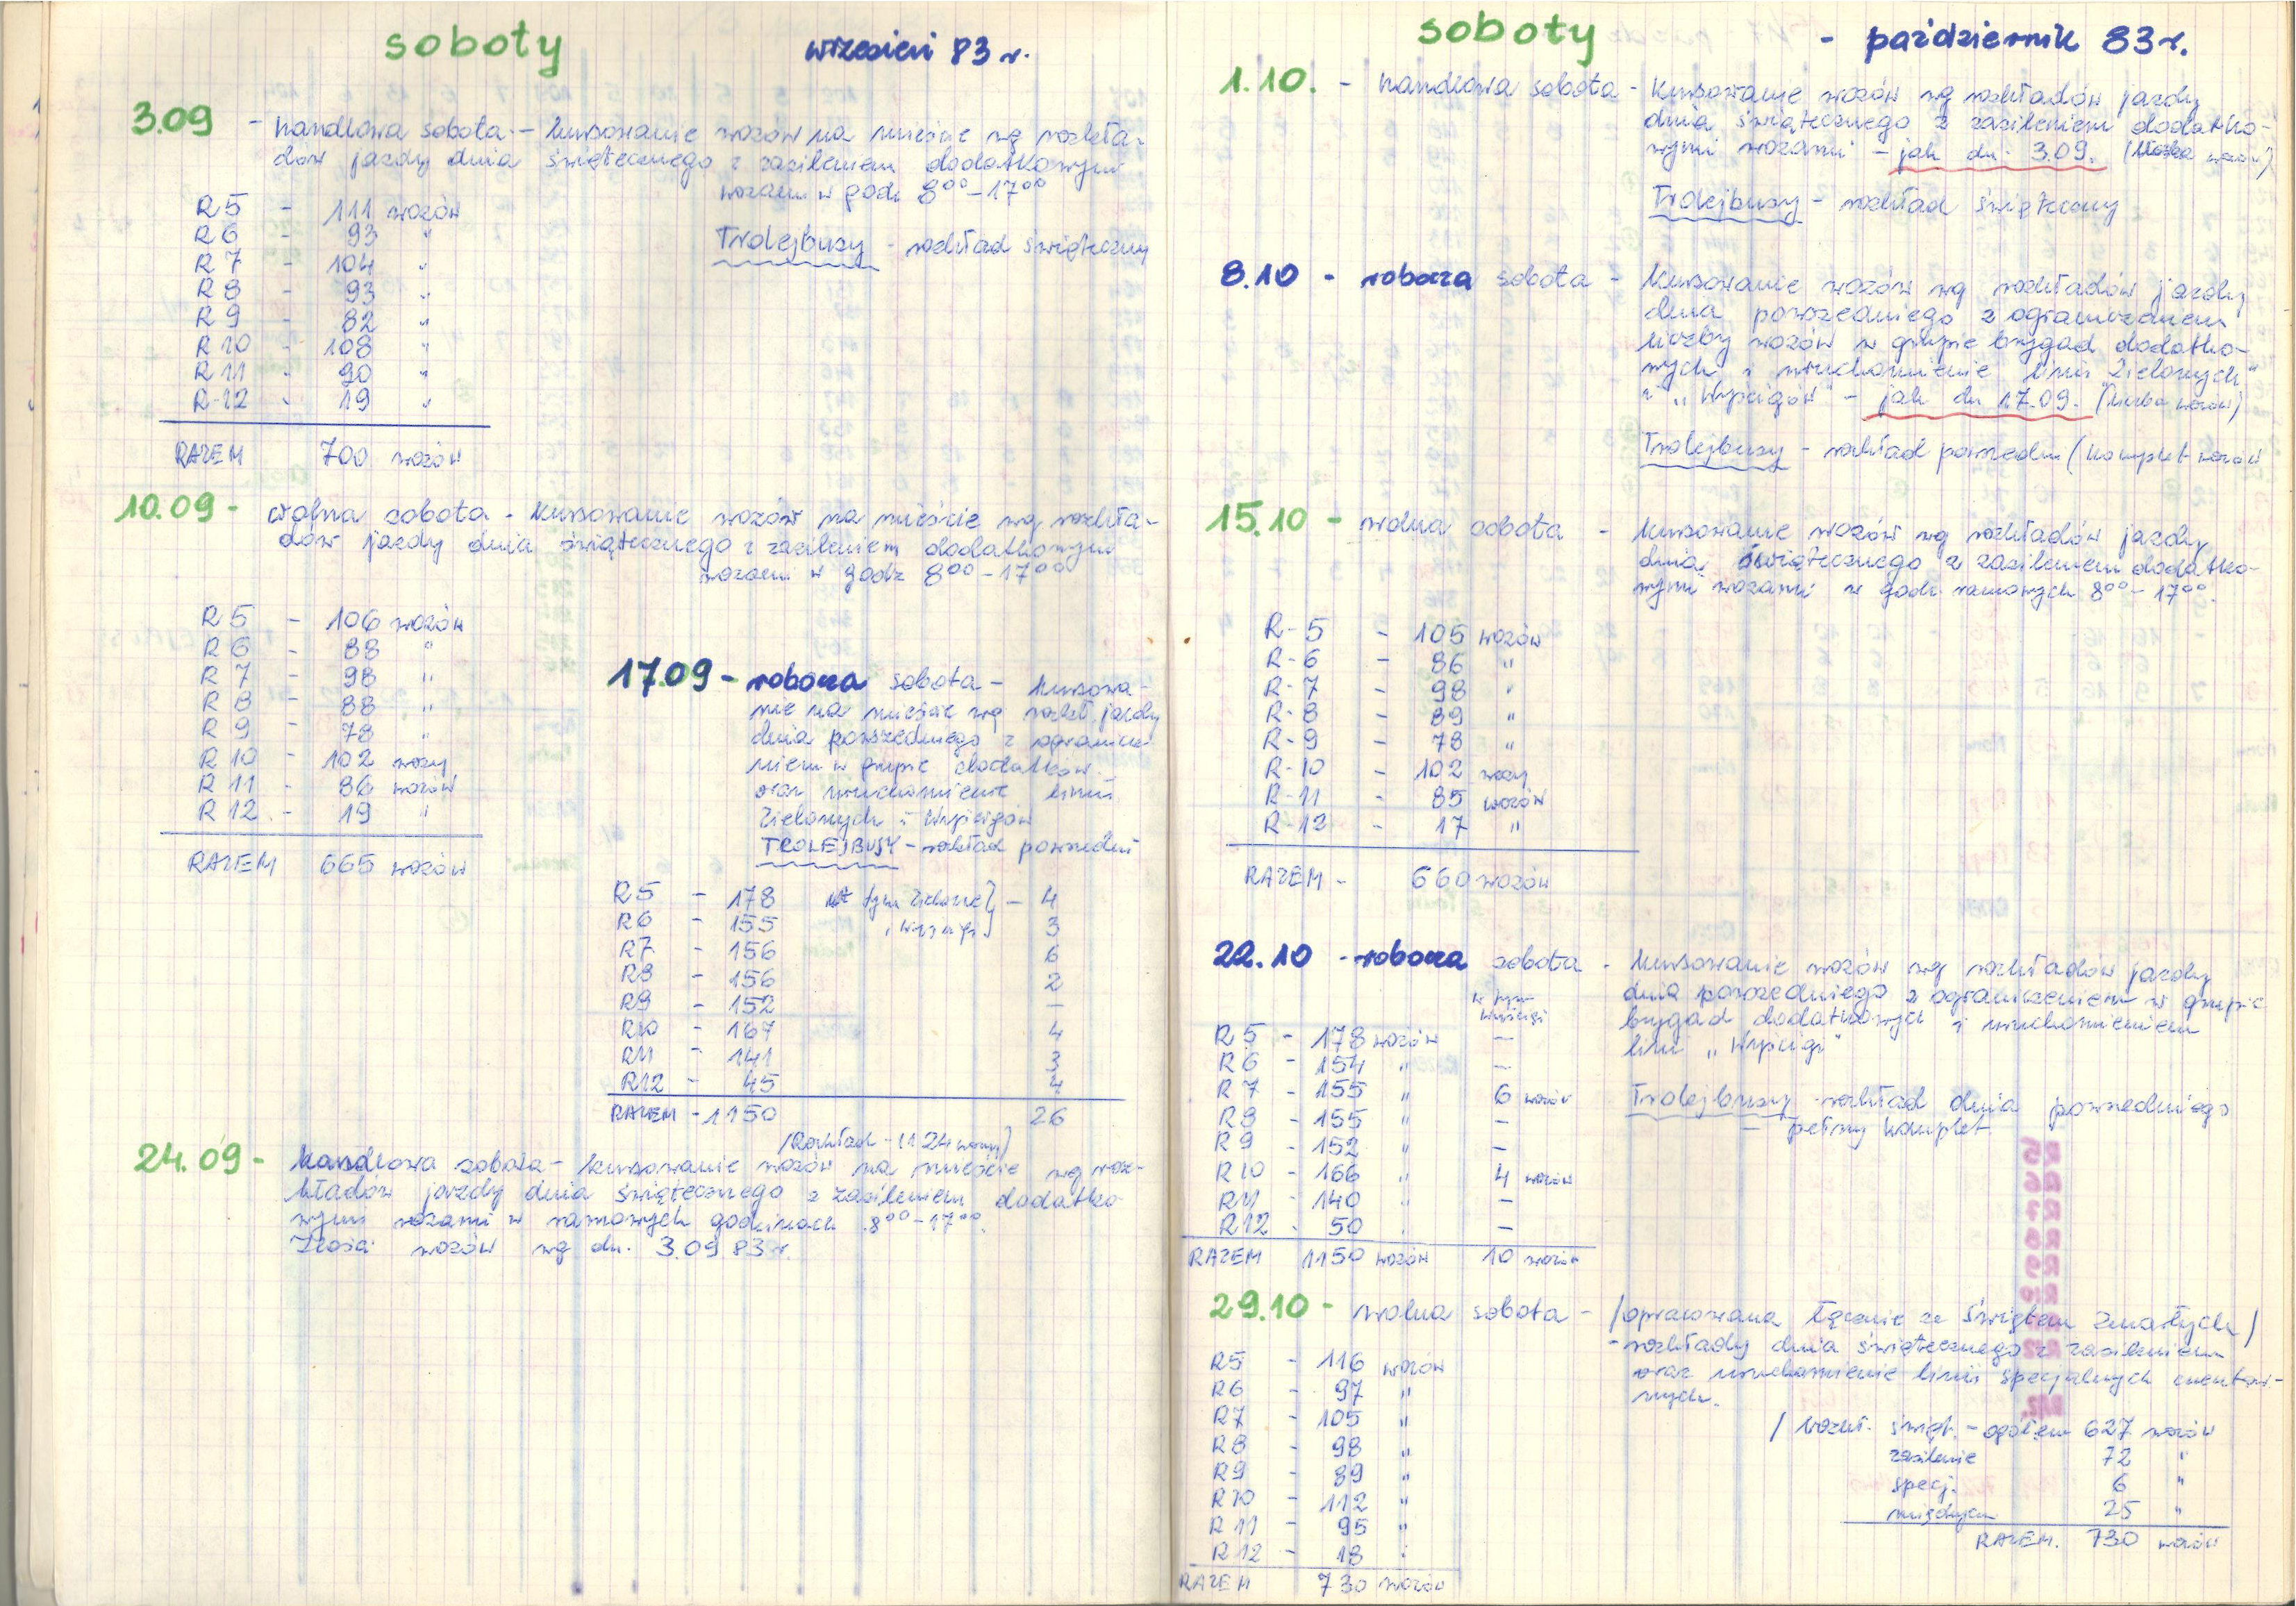 soboty wrzesień 83 r.
3.09 - handlowa sobota - kursowanie wozów na mieście wg rozkła-
dów jazdy dnia świątecznego z zasileniem dodatkowym
wozami w godz 8⁰⁰-17⁰⁰
R5 - 111 wozów
R6 - 93 "
R7 - 104 "
R8 - 93 "
R9 - 82 "
R10 - 108 "
R11 - 90 "
R-12 - 19 "
RAZEM 700 wozów
Trolejbusy - rozkład świąteczny
10.09 - wolna sobota - kursowanie wozów na mieście wg rozkła-
dów jazdy dnia świątecznego z zasileniem dodatkowym
wozami w godz 8⁰⁰-17⁰⁰
R5 - 106 wozów
R6 - 88 "
R7 - 98 "
R8 - 88 "
R9 - 78 "
R10 - 102 wozy
R11 - 86 wozów
R12 - 19 "
RAZEM 665 wozów
17.09 - robocza sobota - kursowa-
nie na mieście wg rozkł. jazdy
dnia powszedniego z ogranicze
niem w grupie dodatków
oraz uruchomienie linii
Zielonych i Wyścigów
TROLEJBUSY - rozkład powszedni
R5 - 178 w tym Zielone} - 4
R6 - 155 "Wyścigi} 3
R7 - 156 6
R8 - 156 2
R9 - 152 —
R10 - 167 4
R11 - 141 3
R12 - 45 4
RAZEM - 1150 26
/Rozkład - 1124 wozy)
24.09 - handlowa sobota - kursowanie wozów na mieście wg roz-
kładów jazdy dnia świątecznego z zasileniem dodatko
wymi wozami w ramowych godzinach 8⁰⁰-17⁰⁰.
Ilość wozów wg dn. 3.09 83 r.
soboty - październik 83 r.
1.10. - handlowa sobota - kursowanie wozów wg rozkładów jazdy
dnia świątecznego z zasileniem dodatko-
wymi wozami - jak dn. 3.09. (liczba wozów)
Trolejbusy - rozkład świąteczny
8.10 - robocza sobota - kursowanie wozów wg rozkładów jazdy
dnia powszedniego z ograniczeniem
liczby wozów w grupie brygad dodatko-
wych i uruchomienie linii "Zielonych"
i „Wyścigów" - jak dn 17.09. (liczba wozów)
Trolejbusy - rozkład powszedni (komplet wozów
15.10 - wolna sobota - kursowanie wozów wg rozkładów jazdy
dnia świątecznego z zasileniem dodatko-
wymi wozami w godz. ramowych 8⁰⁰-17⁰⁰.
R-5 - 105 wozów
R-6 - 86 "
R-7 - 98 "
R-8 - 89 "
R-9 - 78 "
R-10 - 102 wozy
R-11 - 85 wozów
R-12 - 17 "
RAZEM - 660 wozów
22.10 - robocza sobota - kursowanie wozów wg rozkładów jazdy
dnia powszedniego z ograniczeniem w grupie
brygad dodatkowych i uruchomieniem
linii „Wyścigi"
Trolejbusy - rozkład dnia powszedniego
— pełny komplet
w tym
wyścigi
R5 - 178 wozów —
R6 - 154 " —
R7 - 155 " 6 wozów
R8 - 155 " —
R9 - 152 " —
R10 - 166 " 4 wozów
R11 - 140 " —
R12 - 50 " —
RAZEM 1150 wozów 10 wozów
29.10 - wolna sobota - /opracowana łącznie ze Świętem Zmarłych/
- rozkłady dnia świątecznego z zasileniem
oraz uruchomienie linii specjalnych cmentar-
nych.
R5 - 116 wozów
R6 - 97 "
R7 - 105 "
R8 - 98 "
R9 - 89 "
R10 - 112 "
R11 - 95 "
R12 - 18 "
RAZEM 730 wozów
/ rozkł. święt. - ogółem 627 wozów
zasilenie 72 "
specj. 6 "
25 "
RAZEM. 730 wozów